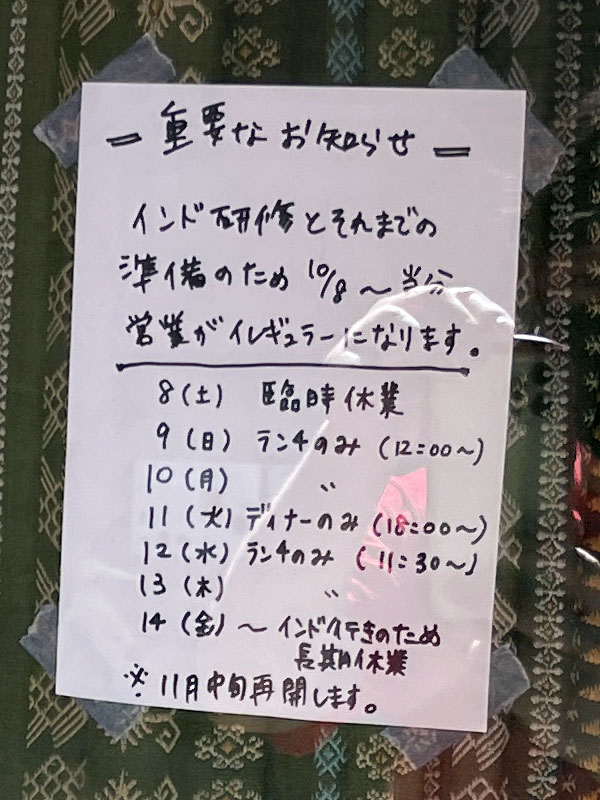 ー 重要なお知らせ ー
インド研修とそれまでの
準備のため 10/8 〜 当分
営業がイレギュラーになります。
8(土) 臨時休業
9(日) ランチのみ (12:00〜)
10(月) 〃
11(火) ディナーのみ (18:00〜)
12(水) ランチのみ (11:30〜)
13(木) 〃
14(金) 〜 インド行きのため
長期休業
※ 11月中旬再開します。